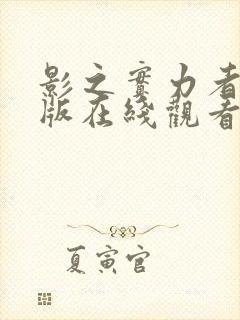 影之實力者
版在綫觀看
夏寅官